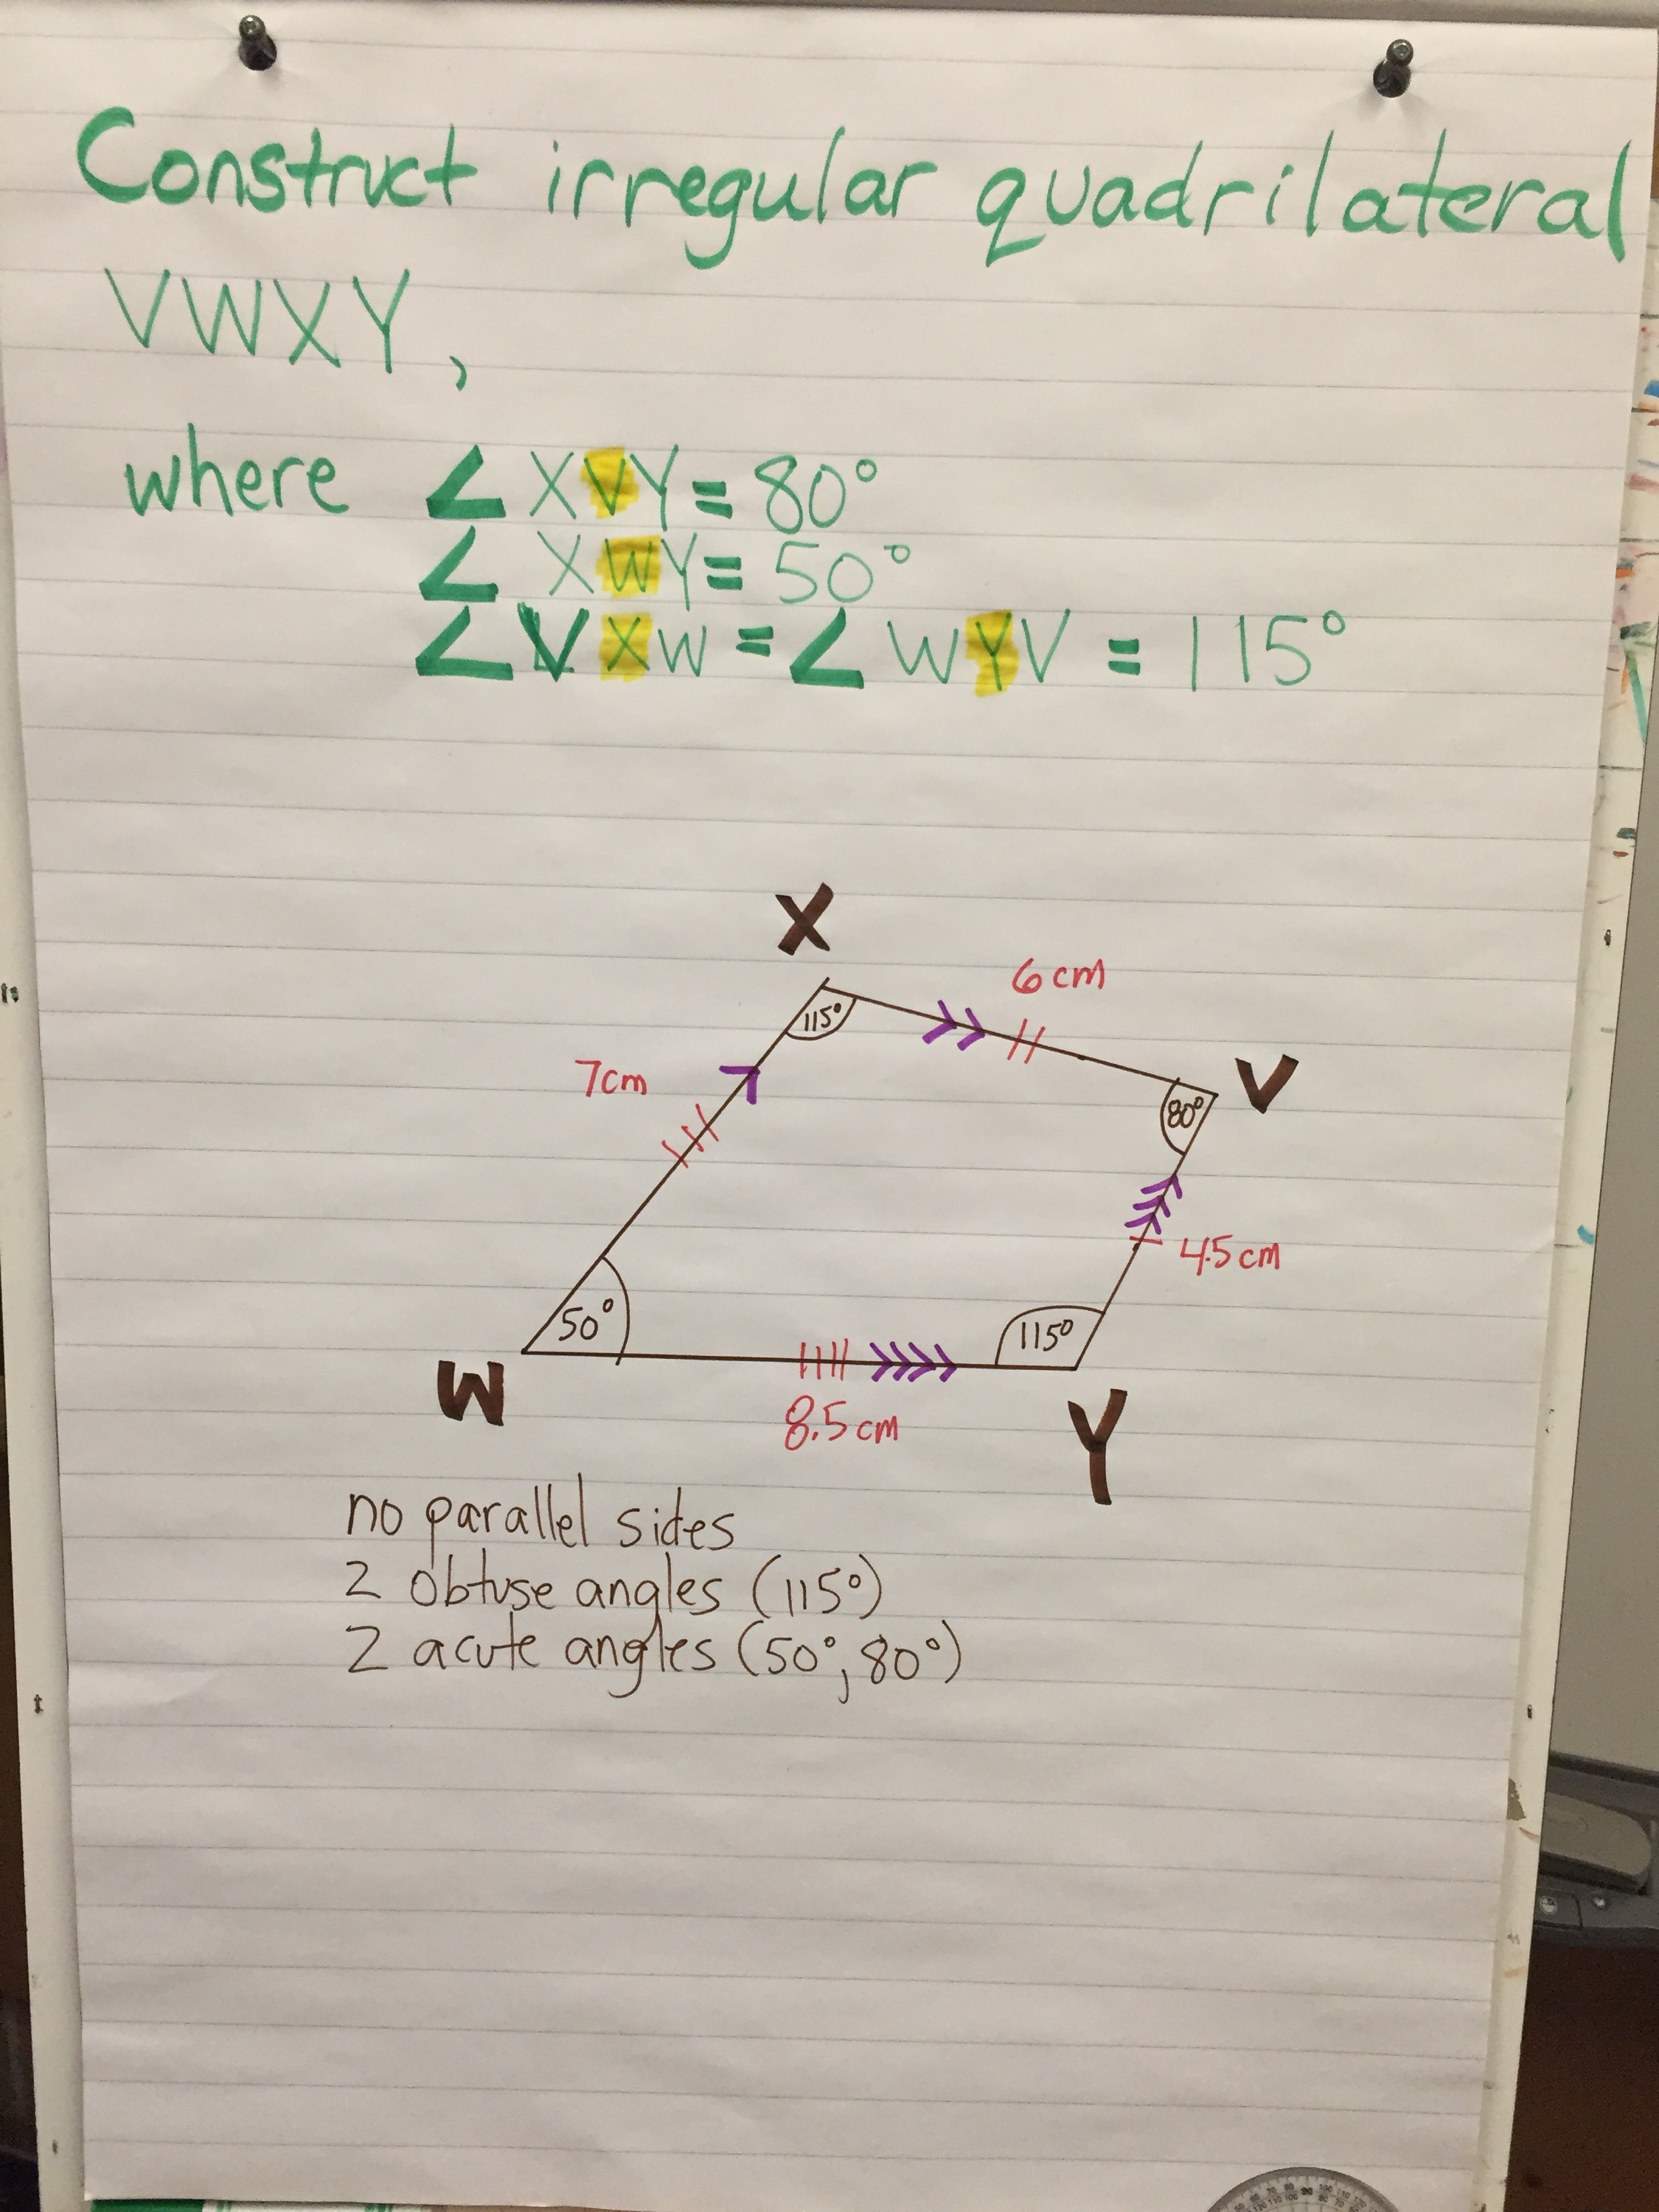 Construct irregular quadrilateral
VWXY,
where ∠XVY = 80°
∠XWY = 50°
∠VXW = ∠WYV = 115°
X
6cm
115°
7cm
V
80°
4.5cm
50°
115°
W
8.5cm
Y
no parallel sides
2 obtuse angles (115°)
2 acute angles (50°, 80°)